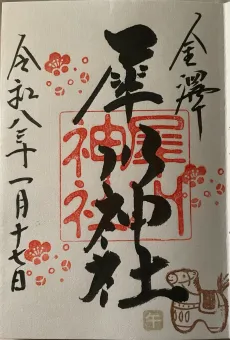 金澤
犀川神社
犀川神社
令和八年一月十七日
午